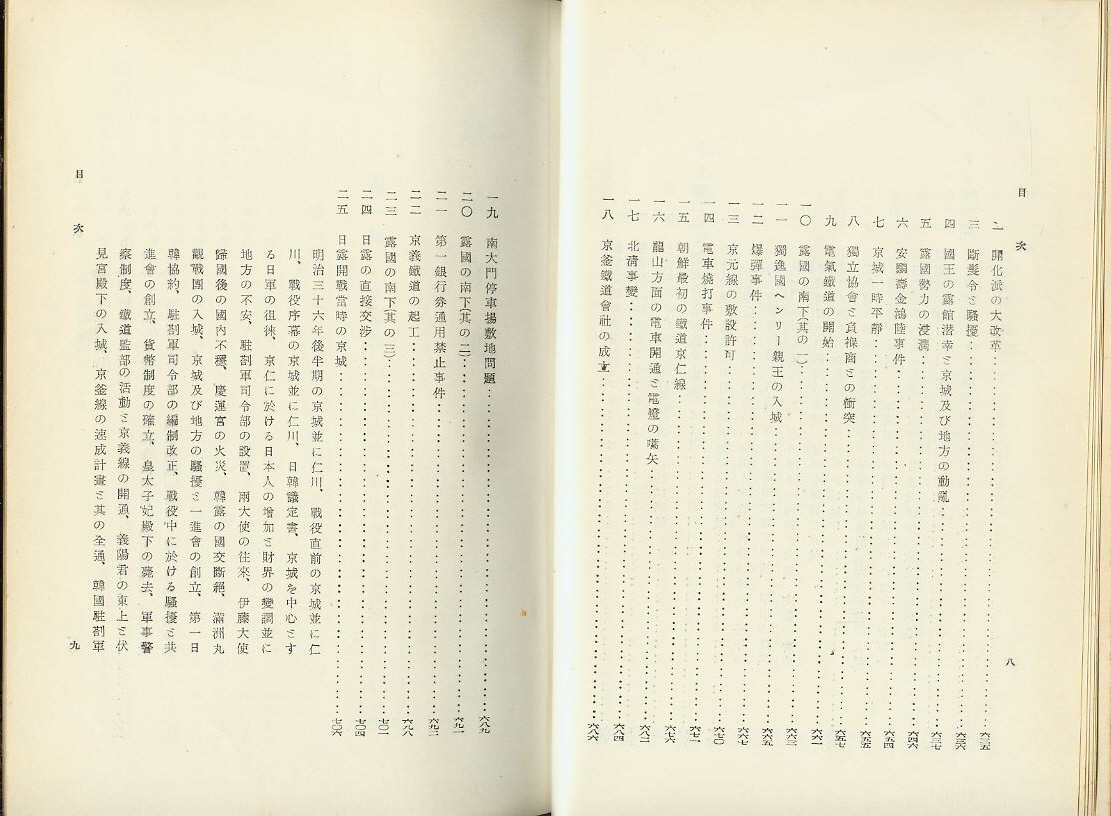 目次
二 開化派の大改革……六三五
三 斷髮令と騷擾……六三六
四 國王の露館潜幸と京城及び地方の動亂……六三七
五 露國勢力の浸潤……六四六
六 安駉壽金鴻陸事件……六五四
七 京城一時平靜……六五五
八 獨立協會と負褓商との衝突……六五七
九 電氣鐵道の開始……六六一
一〇 露國の南下(其の一)……六六三
一一 獨逸國ヘンリー親王の入城……六六五
一二 爆彈事件……六六七
一三 京元線の敷設許可……六七〇
一四 電車燒打事件……六七一
一五 朝鮮最初の鐵道京仁線……六七六
一六 龍山方面の電車開通と電燈の嚆矢……六八二
一七 北淸事變……六八四
一八 京釜鐵道會社の成立……六八六
八
目次
一九 南大門停車場敷地問題……六八九
二〇 露國の南下(其の二)……六九一
二一 第一銀行券通用禁止事件……六九二
二二 京義鐵道の起工……六九八
二三 露國の南下(其の三)……七〇一
二四 日露の直接交涉……七〇四
二五 日露開戰當時の京城……七〇六
明治三十六年後半期の京城並に仁川、戰役直前の京城並に仁
川、戰役序幕の京城並に仁川、日韓議定書、京城を中心とす
る日軍の徂徠、京仁に於ける日本人の增加と財界の變調並に
地方の不安、駐劄軍司令部の設置、兩大使の往來、伊藤大使
歸國後の國內不穩、慶運宮の火災、韓露の國交斷絕、滿洲丸
觀戰團の入城、京城及び地方の騷擾と一進會の創立、第一日
韓協約、駐劄軍司令部の編制改正、戰役中に於ける騷擾と共
進會の創立、貨幣制度の確立、皇太子妃殿下の薨去、軍事警
察制度、鐵道監部の活動と京義線の開通、義陽君の東上と伏
見宮殿下の入城、京釜線の速成計畫と其の全通、韓國駐劄軍
九